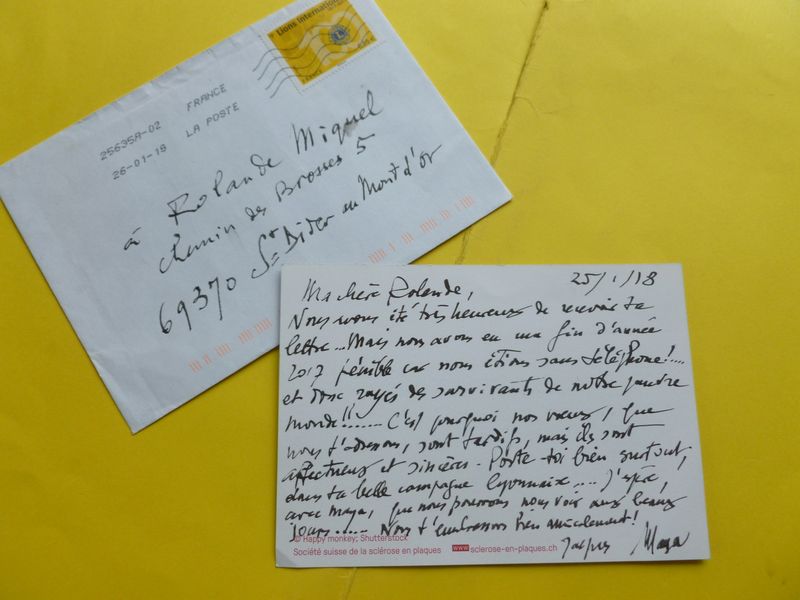 Lions International
FRANCE
LA POSTE
25635A-02
26-01-18
à Rolande Miquel
chemin des Brosses 5
69370 St Didier au Mont d'or
25/1/18
Ma chère Rolande,
Nous avons été très heureux de recevoir ta
lettre... Mais nous avons eu une fin d'année
2017 pénible car nous étions sans téléphone!....
et donc rayés des survivants de notre pauvre
monde!!....... C'est pourquoi nos vœux, que
nous t'adressons, sont tardifs, mais ils sont
affectueux et sincères. Porte toi bien surtout,
dans ta belle campagne lyonnaise.... J'espère,
avec Maya, que nous pourrons nous voir aux beaux
jours...... Nous t'embrassons bien amicalement!
Jacques Maya
© Happy monkey; Shutterstock
Société suisse de la sclérose en plaques www.sclerose-en-plaques.ch